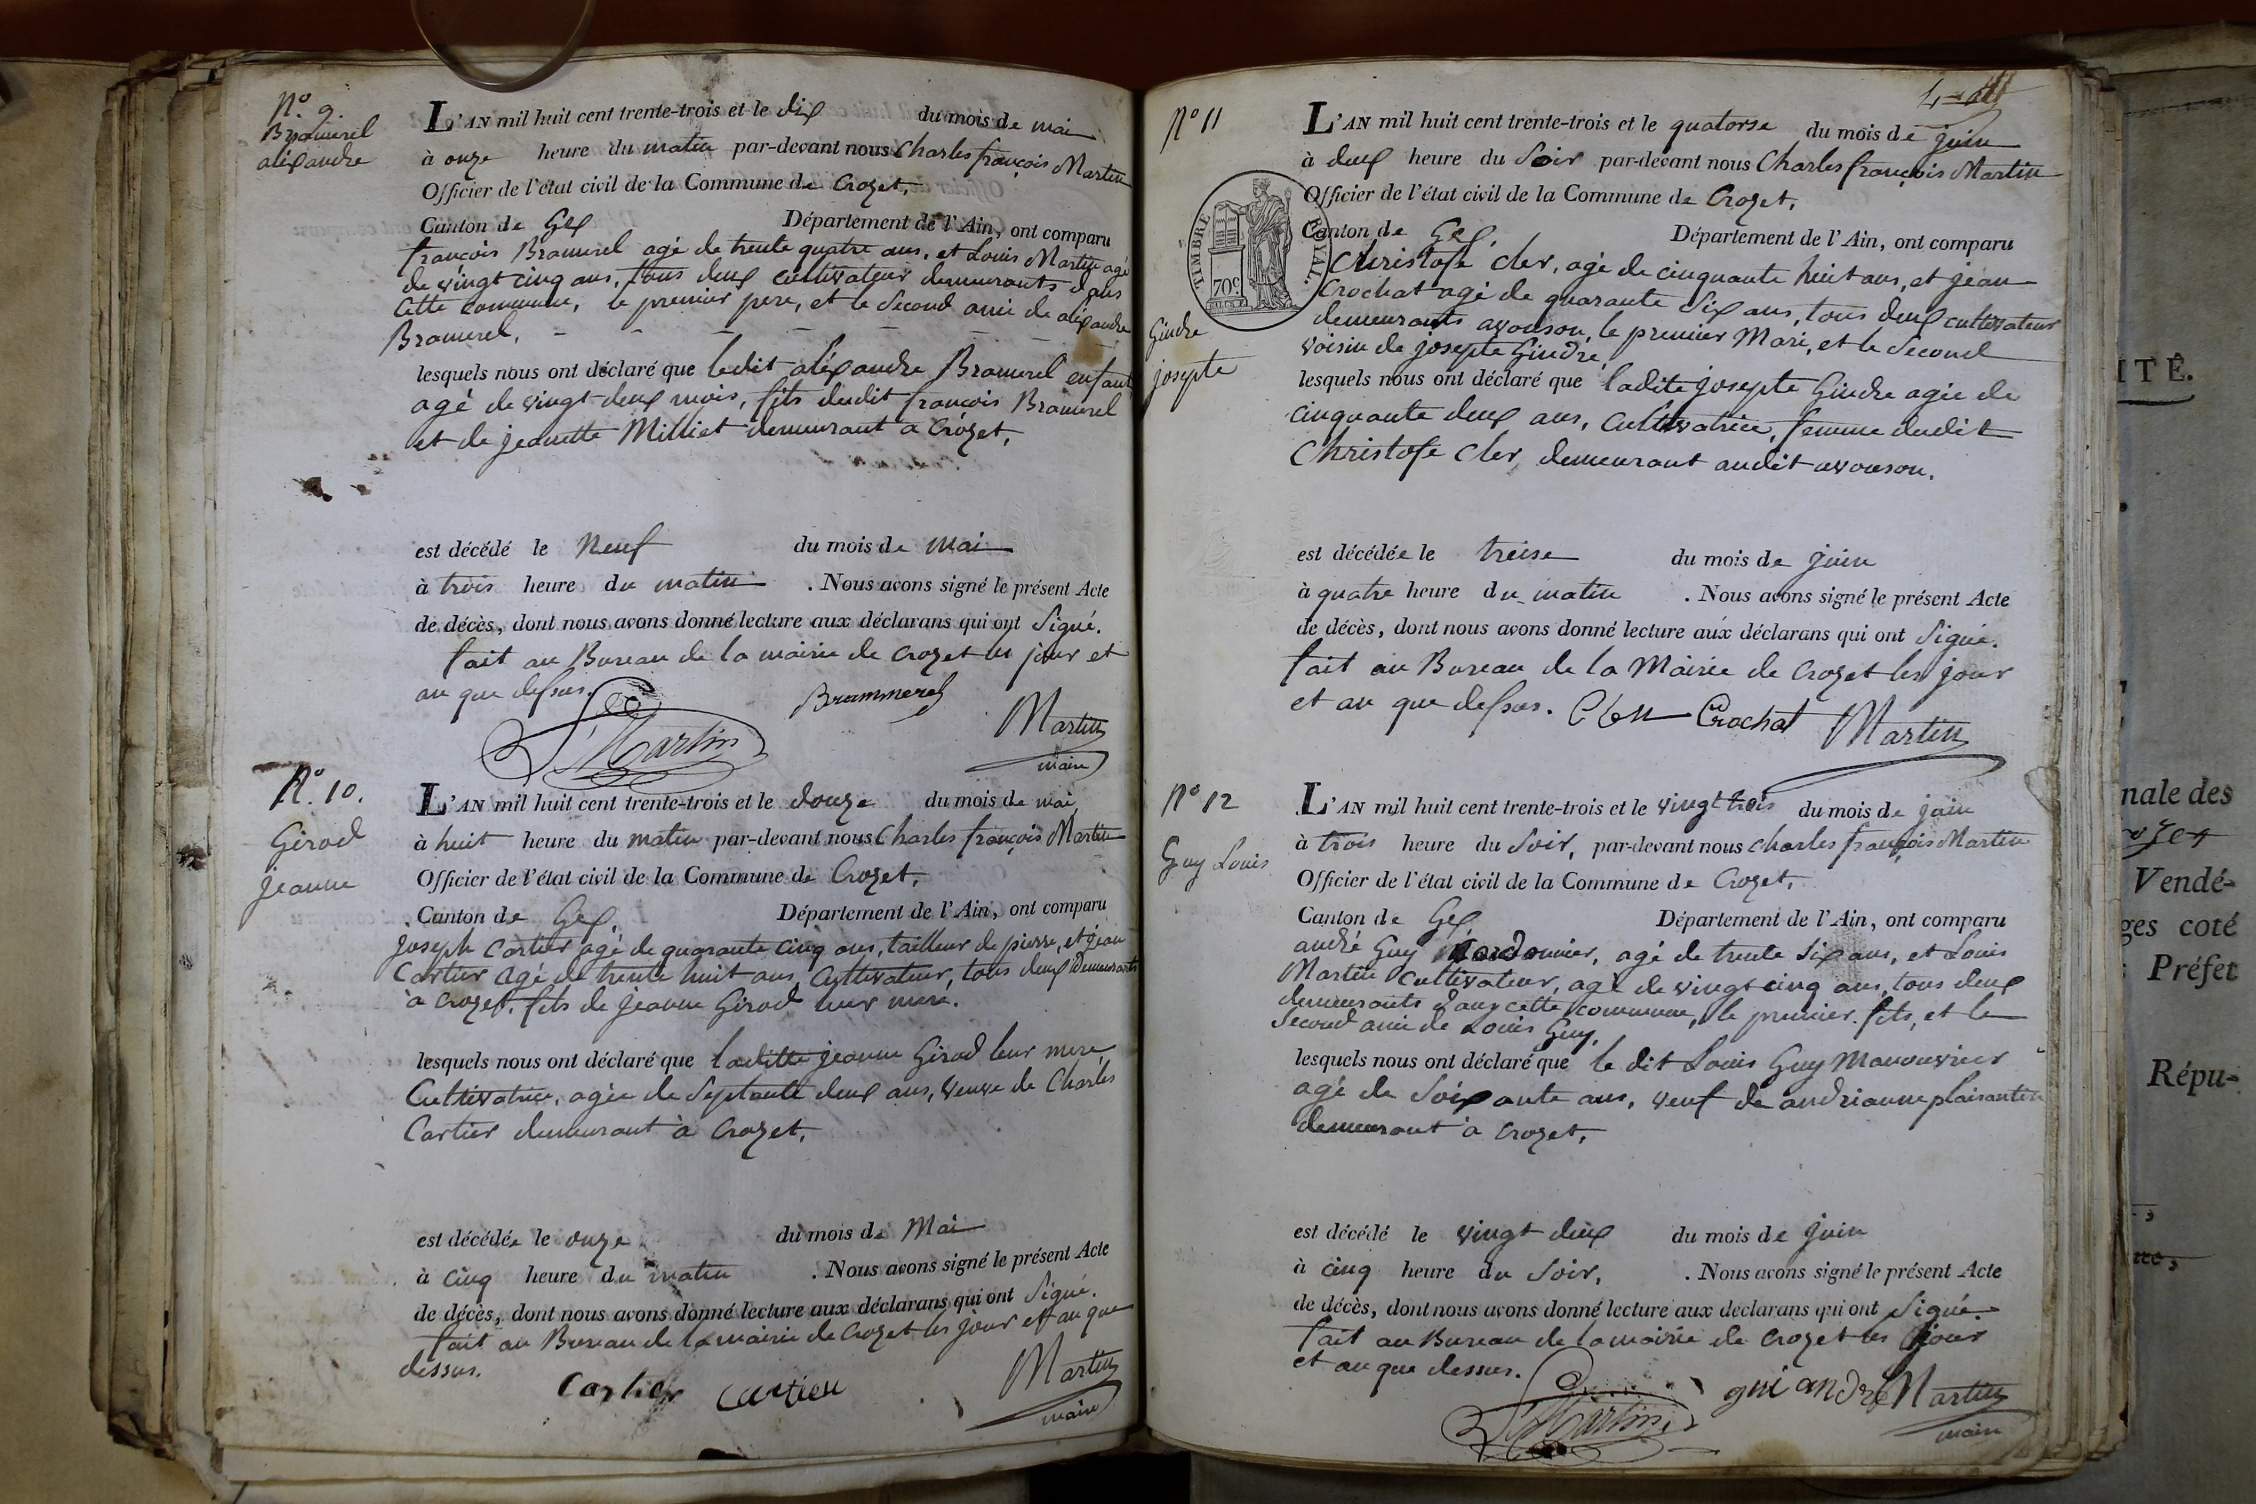 N.o 9.
Bramerel
aléxandre
L'AN mil huit cent trente-trois et le dix du mois de mai
à onze heure du matin par-devant nous Charles françois Martin
Officier de l'état civil de la Commune de Crozet,
Canton de Gex Département de l'Ain, ont comparu
françois Bramerel agé de trente quatre ans, et Louis Martin agé
de vingt cinq ans, tous deux cultivateur demeurants dans
Cette commune, le premier pere, et le Second ami de aléxandre
Bramerel,
lesquels nous ont déclaré que ledit aléxandre Bramerel enfant
agé de vingt-deux mois, fils dudit françois Bramerel
et de jeanette Milliet demeurant a Crozet,
est décédé le Neuf du mois de Mai
à trois heure du matin . Nous avons signé le présent Acte
de décès, dont nous avons donné lecture aux déclarans qui ont Signé.
fait au Bureau de la mairie de Crozet les jour et
an que dessus.
Brammerel
Martin
Martin
maire
N.o 10.
Girod
jeanne
L'AN mil huit cent trente-trois et le douze du mois de mai,
à huit heure du matin par-devant nous Charles françois Martin
Officier de l'état civil de la Commune de Crozet,
Canton de Gex, Département de l'Ain, ont comparu
joseph Cartier agé de quarante cinq ans, tailleur de pierre, et jean
Cartier agé de trente huit ans, Cultivateur, tous deux Demeurants
à Crozet, fils de jeanne Girod leur mere.
lesquels nous ont déclaré que laditte jeanne Girod leur mere,
Cultivatrice, agée de Septante deux ans, veuve de Charles
Cartier demeurant à Crozet,
est décédée le onze du mois de Mai
à cinq heure du matin . Nous avons signé le présent Acte
de décès, dont nous avons donné lecture aux déclarans qui ont Signé.
fait au Bureau de la mairie de Crozet les jour et an que
dessus.
Cartier cartier
Martin
maire
N.o 11
Gindre
josepte
TIMBRE ROYAL.
70c.
L'AN mil huit cent trente-trois et le quatorse du mois de juin
à deux heure du Soir par-devant nous Charles françois Martin
Officier de l'état civil de la Commune de Crozet,
Canton de Gex, Département de l'Ain, ont comparu
Christofe Cler, agé de cinquante huit ans, et jean
Crochat agé de quarante Six ans, tous deux cultivateur
demeurants avouson, le premier Mari, et le Second
voisin de josepte Gindre,
lesquels nous ont déclaré que ladite josepte Gindre agée de
cinquante deux ans, Cultivatrice, femme dudit
Christofe Cler, demeurant audit avouson.
est décédée le treise du mois de juin
à quatre heure du matin . Nous avons signé le présent Acte
de décès, dont nous avons donné lecture aux déclarans qui ont Signé.
fait au Bureau de la Mairie de Crozet les jour
et an que dessus.
Crochat Martin
N.o 12
Guy Louis
L'AN mil huit cent trente-trois et le vingt trois du mois de juin
à trois heure du Soir, par-devant nous Charles françois Martin
Officier de l'état civil de la Commune de Crozet,
Canton de Gex, Département de l'Ain, ont comparu
andré Guy Cordonnier, agé de trente Six ans, et Louis
Martin cultivateur, agé de vingt cinq ans, tous deux
demeurants dans cette commune, le premier fils, et le
Second ami de Louis Guy,
lesquels nous ont déclaré que le dit Louis Guy Manouvrier
agé de Soixante ans, veuf de andrianne plaisantin
demeurant à Crozet,
est décédé le vingt deux du mois de juin
à cinq heure du Soir, . Nous avons signé le présent Acte
de décès, dont nous avons donné lecture aux declarans qui ont Signé.
fait au Bureau de la mairie de Crozet les jour
et an que dessus.
Martin
gui andré Martin
maire
ITÉ.
nale des
Vendé-
ges coté
Préfet
Répu-